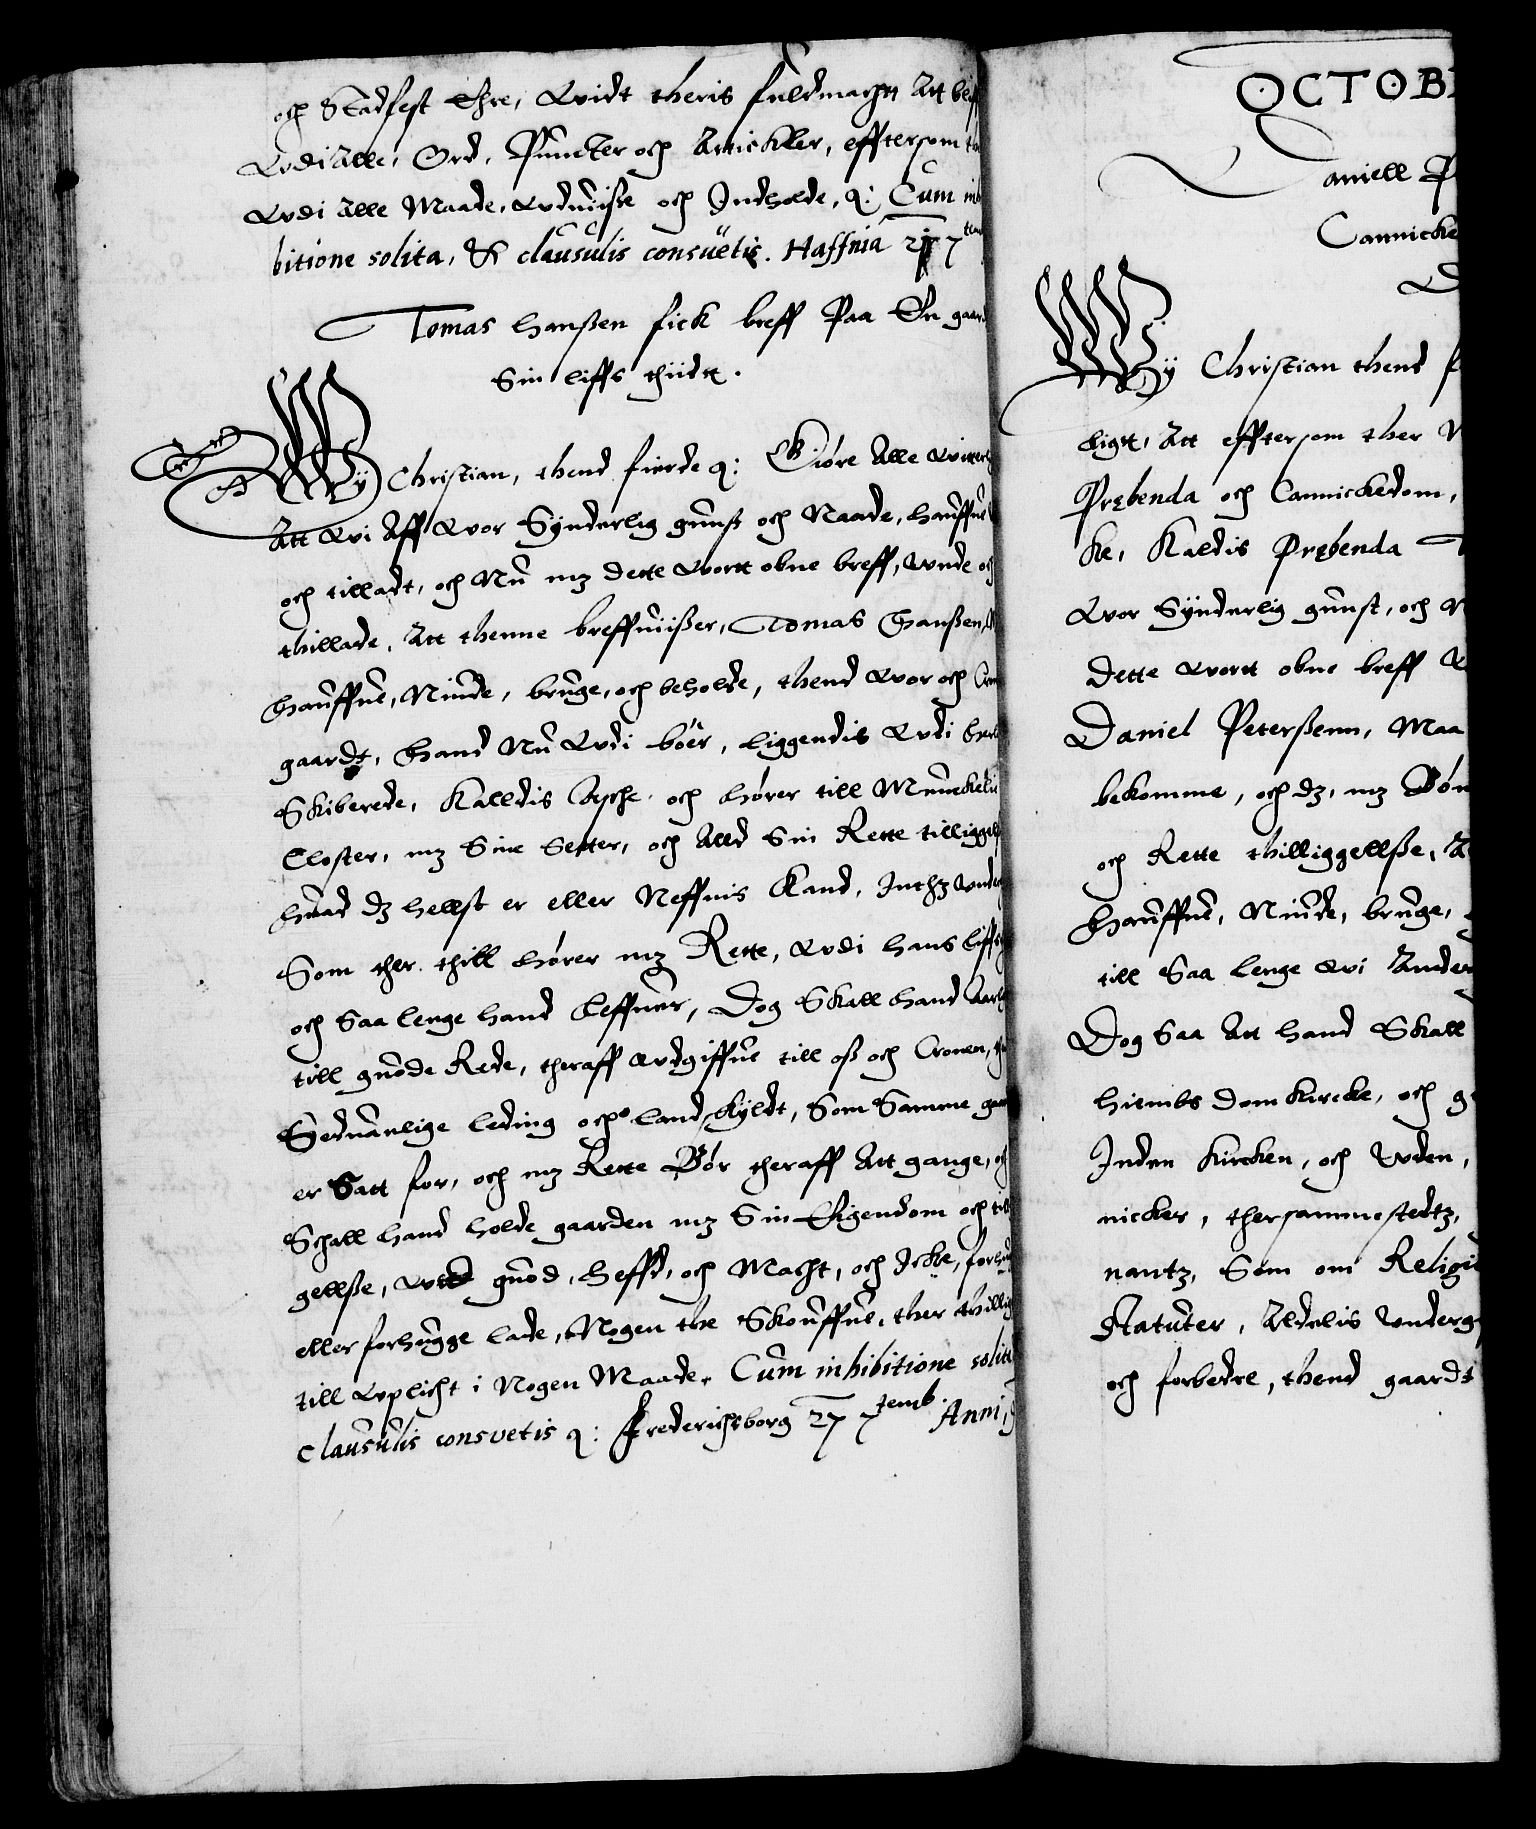 och Stadfest Ehre, Vvidt theris fuldmachtt Att
Vvdi Alle, Ord, Puncter och Artickler, efftersom
Vvdi Alle Maade, Vvduiiße och Indholde, &: Cum
bitione solita, & clausulis consuetis. Haffnia 27 7
Tomas Hanßen fick breff Paa En gaar
Sin liffs thiidtt.
Wÿ Christian, thend fierde &: Giøre Alle vitter
Att Vvi Aff Vvor Synderlig gunst och Naade, haffue
och tilladt, och Nu mz dette Vvortt obne breff, Vnde och
thillade, Att thenne breffuiißer, Tomas Hanßen,
Hauffue, Niude, bruge, och beholde, thend Vvor och
gaardt, Hand Nu Vvdi boër, liggendis Vvdi
Skiberede, Kalldis och hører till Munckeliff
Closter, mz Sine Setter, och Alld Sin Rette tilliggel
huad dz hellst er eller Neffnis Kand, Inthz Vnder
Som ther till hører mz Rette, Vvdi hans liffs
och Saa lenge hand leffuer, Dog Skall hand Aar
till guode Rede, theraff Vvdgiffue till oß och Cronen,
Seduanlige leding och landskyldt, Som Samme gaar
er Satt for, och mz Rette Bør theraff Att gange, och
Schall hand holde gaarden mz Sin Eigendom och till
gellße, Vved guod, Heffd, och Macht, och Icke, forhu
eller forhugge lade, Nogen the Skouffue, ther thillig
till Vvplicht i Nogen Maade. Cum inhibitione solita
clausulis consvetis &: Frederichsborg 27 7temb. Anni,
OCTOB
Daniell P
Cannicke
Wÿ Christian thend f
ligtt, Att efftersom ther
Præbenda och Cannickedom,
ke, Kaldis Præbenda
Vvor Sÿnderlig gunst, och N
dette Vvortt obne breff
Daniel Peterßenn, Maa
bekomme, och dz, mz Bøn
och Rette thilliggellße,
Hauffue, Niude, bruge,
till Saa lenge Vvi Ander
Dog Saa Att hand Skall
hiembs dom Kircke, och g
Inden Kircken, och Vden,
nicker, thersammestedtz,
nantz, Som om Religi
Statuter, Aldelis Vnderg
och forbedre, thend gaardt